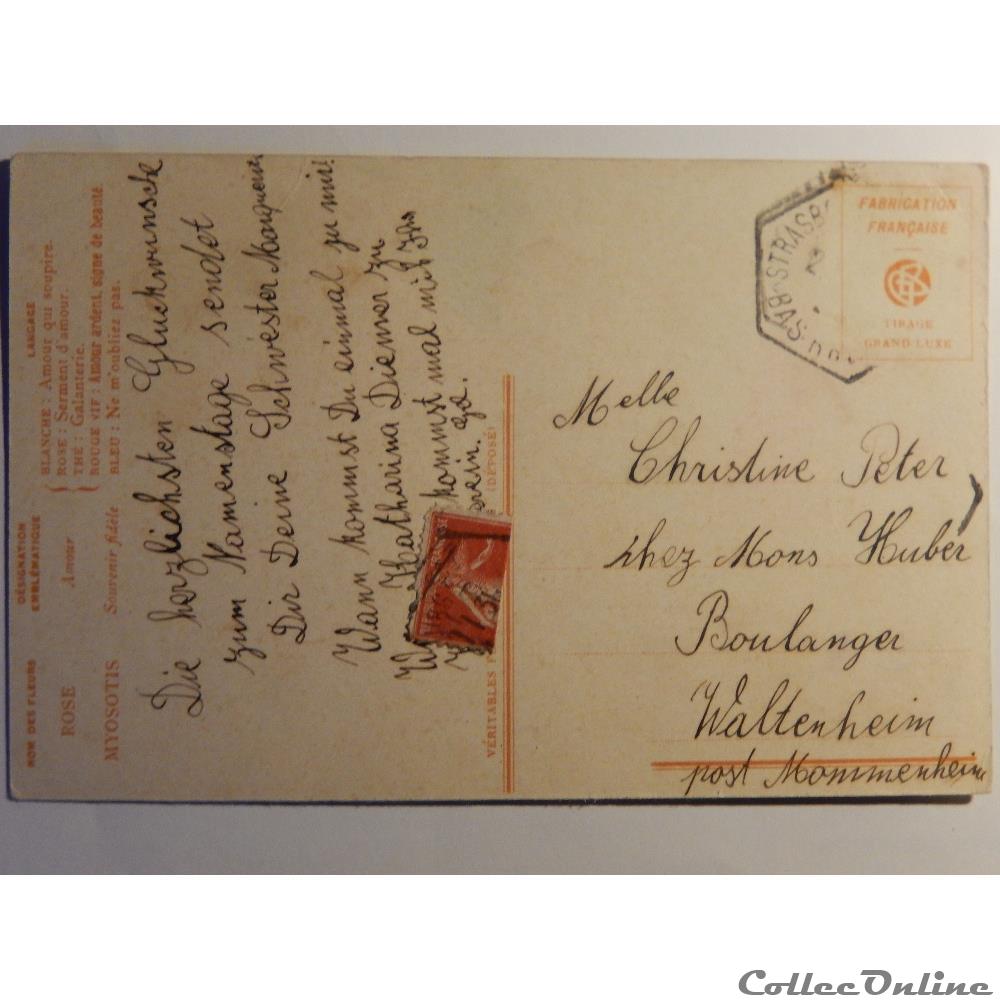 NOM DES FLEURS
DÉSIGNATION EMBLÉMATIQUE
LANGAGE
ROSE
Amour
BLANCHE : Amour qui soupire.
ROSE : Serment d'amour.
THÉ : Galanterie.
ROUGE VIF : Amour ardent, signe de beauté
MYOSOTIS
Souvenir fidèle
BLEU : Ne m'oubliez pas.
Die herzlichsten Gluckwunsche
zum Namenstage sendet
Dir Deine Schwester Marguerite
Wann kommst Du einmal zu mir!
Katharina Diemer zu
kommst mal mit Ihr
VÉRITABLES
(DÉPOSÉ)
STRASB
FABRICATION
FRANÇAISE
TIRAGE
GRAND-LUXE
Melle
Christine Peter
chez Mons Huber
Boulanger
Waltenheim
post Mommenheim
CollecOnline